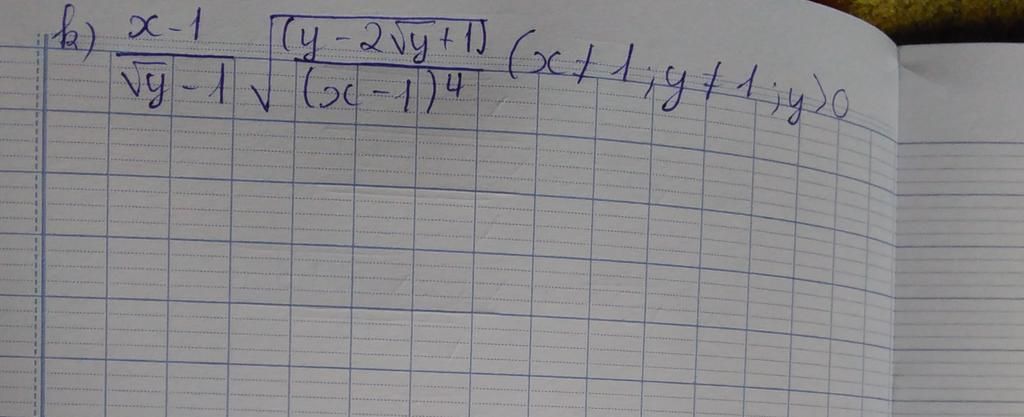 b) \frac{x-1}{\sqrt{y}-1} \sqrt{\frac{(y-2\sqrt{y}+1)}{(x-1)^4}} (x≠1; y≠1; y>0